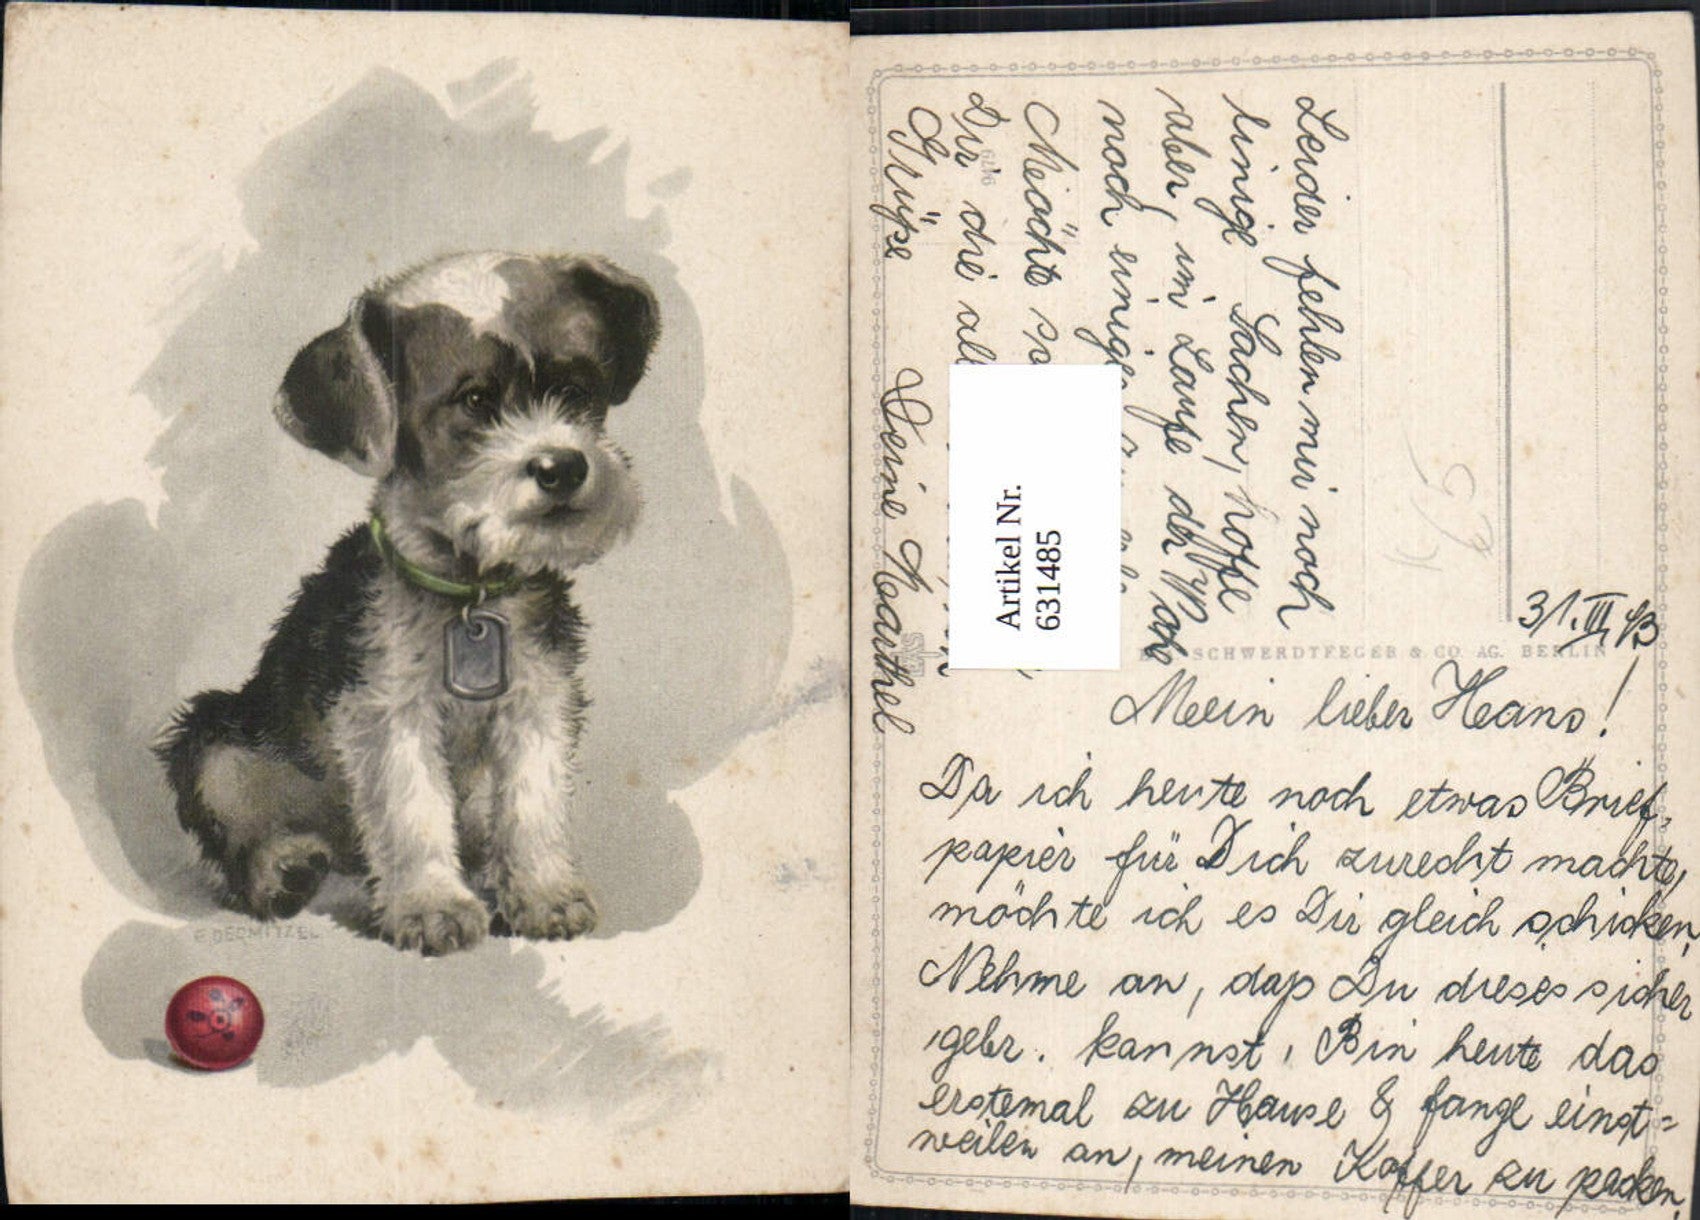 E. DERMITZEL
31. III. 43
Mein lieber Hans!
Da ich heute noch etwas Brief-
papier für Dich zurecht machte,
möchte ich es Dir gleich schicken.
Nehme an, daß Du dieses sicher
gebr. kannst. Bin heute das
erstemal zu Hause & fange einst=
weilen an, meinen Koffer zu packen.
Leider fehlen mir noch
einige Sachen, hoffe
aber, im Laufe der Woche
noch einige
Möchte
Dir die
Grüße
Deine Marthel
SCHWERDTFEGER & CO. AG. BERLIN
EAS
Artikel Nr.
631485